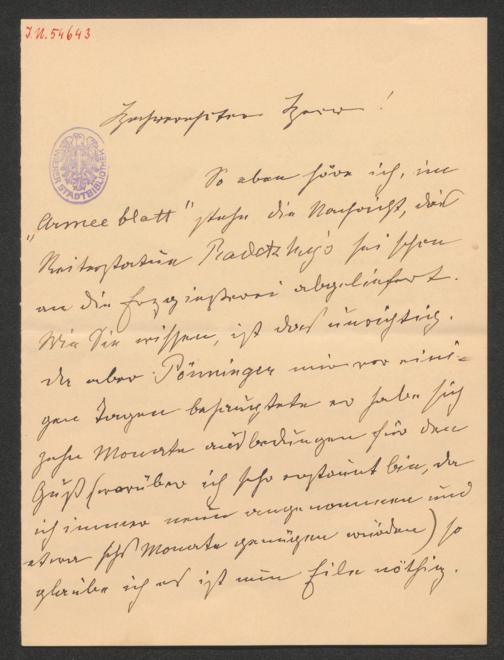 J.N. 54643
Hochverehrter Herr!
WIENER STADTBIBLIOTHEK
So eben höre ich, im
„Armeeblatt" stehe die Nachricht, das
Reiterstatue Radetzkys sei schon
an die Erzgießerei abgeliefert.
Wie Sie wissen, ist das unrichtig.
da aber Pönninger mir vor eini-
gen Tagen behauptete er habe sich
zehn Monate ausbedungen für den
Guß (worüber ich sehr erstaunt bin, da
ich immer neun angenommen und
etwa sechs Monate genügen würden) so
glaube ich es ist nun Eile nöthig.